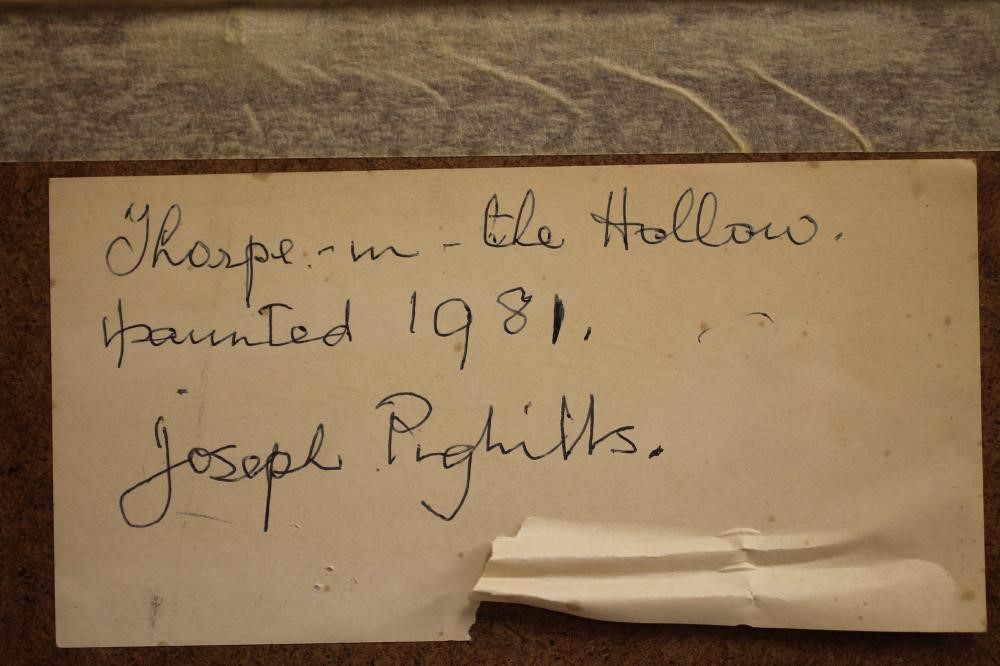 Thorpe-in-the Hollow.
painted 1981.
Joseph Pighills.